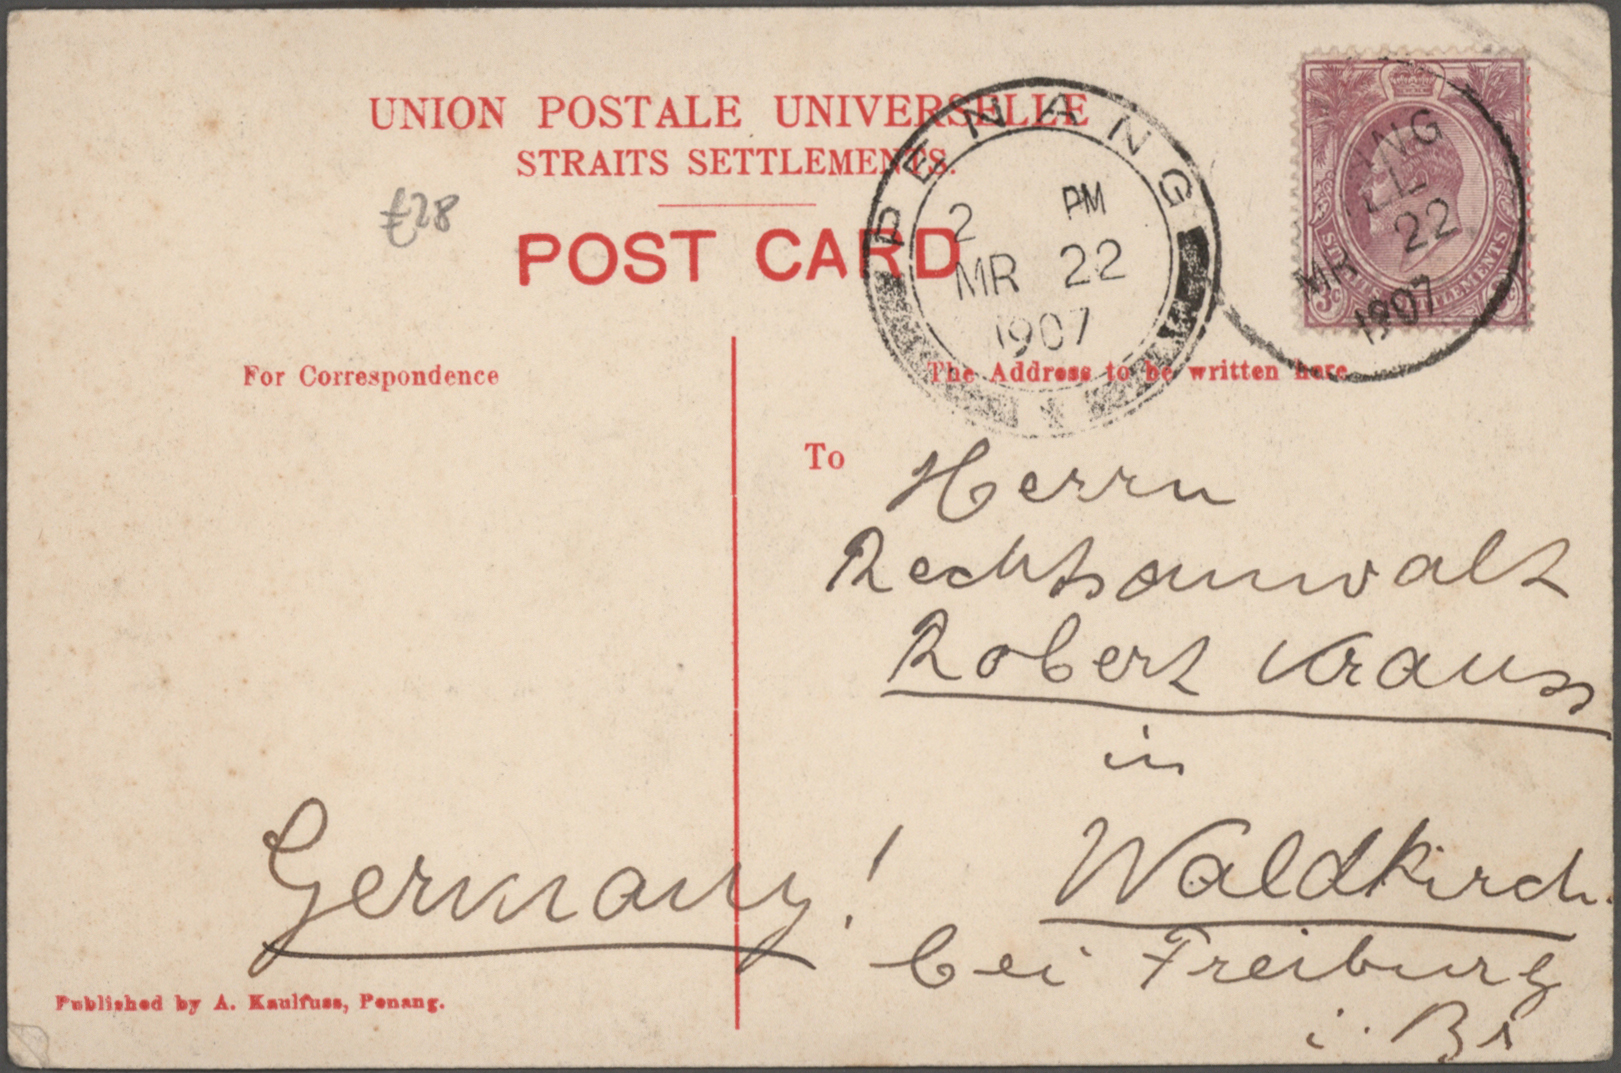 UNION POSTALE UNIVERSELLE
STRAITS SETTLEMENTS.
£28
POST CARD
PENANG
2 PM
MR 22
1907
ANG
22
MR
1907
STRAITS SETTLEMENTS
3c
For Correspondence
The Address to be written here
To
Herrn
Rechtsanwalt
Robert Krauss
in
Waldkirch.
bei Freiburg
i. Br
Germany!
Published by A. Kaulfuss, Penang.